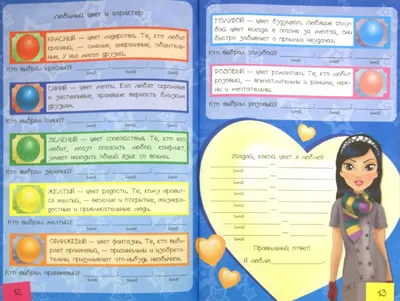 Любимый цвет и характер
КРАСНЫЙ — цвет лидерства. Те, кто любит
красный, — смелые, энергичные, общитель-
ные. У них много друзей.
Кто выбрал красный?
СИНИЙ — цвет мечты. Его любят скромные
и застенчивые, хранящие верность близким
друзьям.
Кто выбрал синий?
ЗЕЛЕНЫЙ — цвет спокойствия. Те, кто его
любит, могут погасить любой конфликт,
умеют находить общий язык со всеми.
Кто выбрал зеленый?
ЖЕЛТЫЙ — цвет радости. Те, кому нравит-
ся желтый, — веселые и открытые, жизнера-
достные и привлекательные люди.
Кто выбрал желтый?
ОРАНЖЕВЫЙ — цвет фантазии. Те, кто выби-
рает оранжевый, — оригинальны и изобрета-
тельны, придумывают что-нибудь необычное.
Кто выбрал оранжевый?
12
ГОЛУБОЙ — цвет будущего. Любящие голу-
бой цвет всегда в погоне за мечтой, они
быстро забывают о прошлых неудачах.
Кто выбрал голубой?
РОЗОВЫЙ — цвет романтики. Те, кто любит
розовый, — впечатлительные и ранимы, неж-
ны и мечтательны.
Кто выбрал розовый?
Угадай, какой цвет я люблю?
Правильный ответ!
Я люблю
13